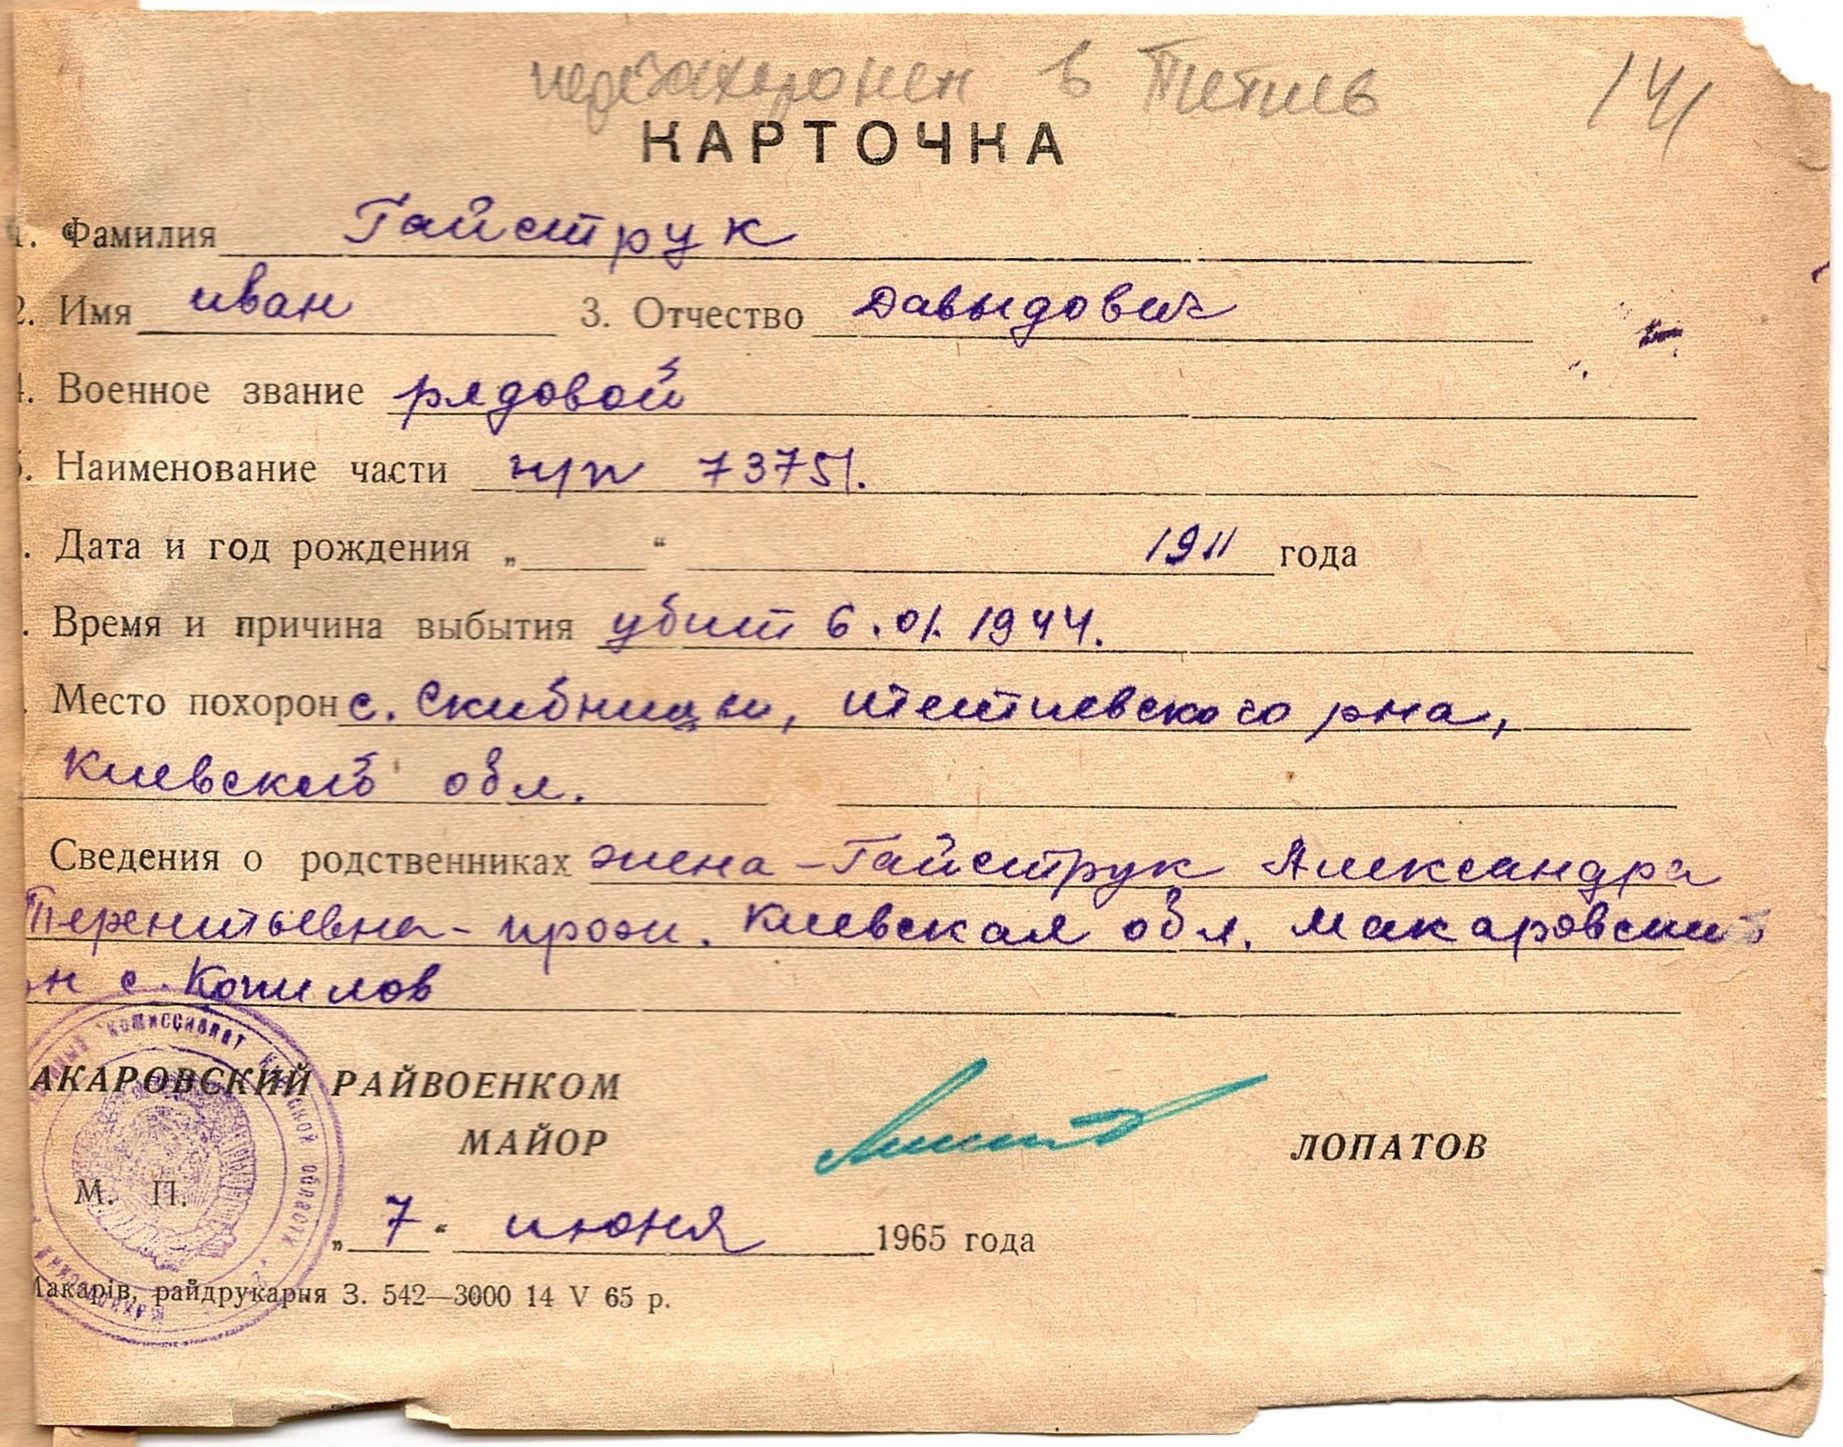 перезахоронен в Тетиев 141
КАРТОЧКА
1. Фамилия Гайструк
2. Имя иван 3. Отчество Давыдович
4. Военное звание рядовой
5. Наименование части п/п 73751.
. Дата и год рождения „ “ 1911 года
. Время и причина выбытия убит 6.01.1944.
. Место похорон с. Скибницы, тетиевского рна,
Киевской обл.
Сведения о родственниках жена-Гайструк Александра
Терентьевна- прож. Киевская обл. Макаровский
н с. Копилов
АКАРОВСКИЙ РАЙВОЕНКОМ
МАЙОР ЛОПАТОВ
М. П.
„7“ июня 1965 года
Макарів, райдрукарня З. 542—3000 14 V 65 р.
комиссариат Киевской области